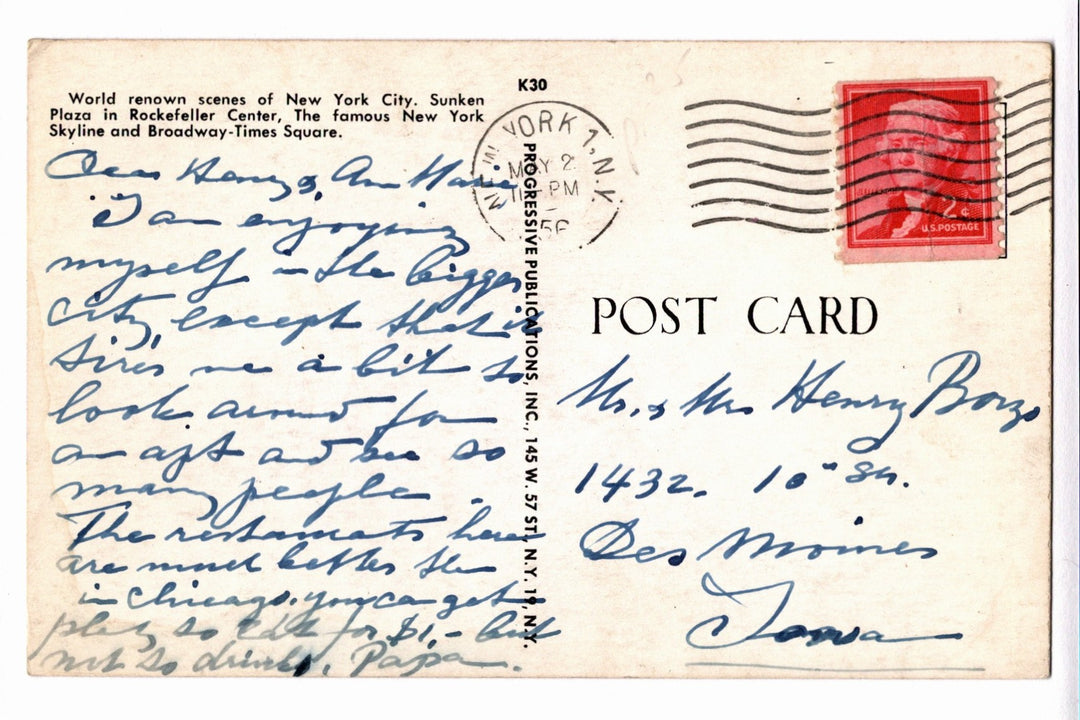 K30
World renown scenes of New York City. Sunken
Plaza in Rockefeller Center, The famous New York
Skyline and Broadway-Times Square.
Dear Henry & Ann Marie
I am enjoying
myself in the bigger
city, except that it
tires me a bit to
look around for
an apt and see so
many people.
The restaurants here
are much better then
in Chicago. you can get
plenty to eat for $1,- but
not to drink. Papa.
PROGRESSIVE PUBLICATIONS, INC., 145 W. 57 ST., N.Y. 19, N.Y.
NEW YORK 1, N.Y.
MAY 2
PM
56
2¢
U.S. POSTAGE
POST CARD
Mr. & Mrs Henry Borzo
1432. 10th St.
Des Moines
Iowa